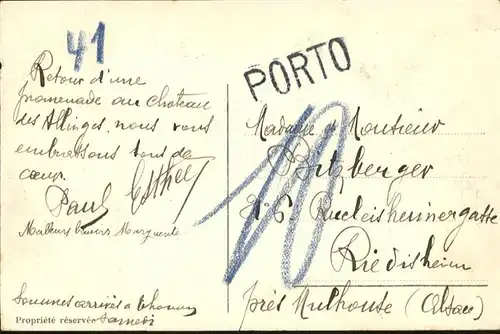 41
Retour d'une
promenade au Chateau
des Allinges, nous vous
embrassons tous de
cœur.
Paul Esther
Meilleurs baisers Marguerite
Sommes arrivés à Thonon
samedi
Propriété réservée
PORTO
10
Madame Monsieur
Bitzberger
Riedisheim
près Mulhouse (Alsace)